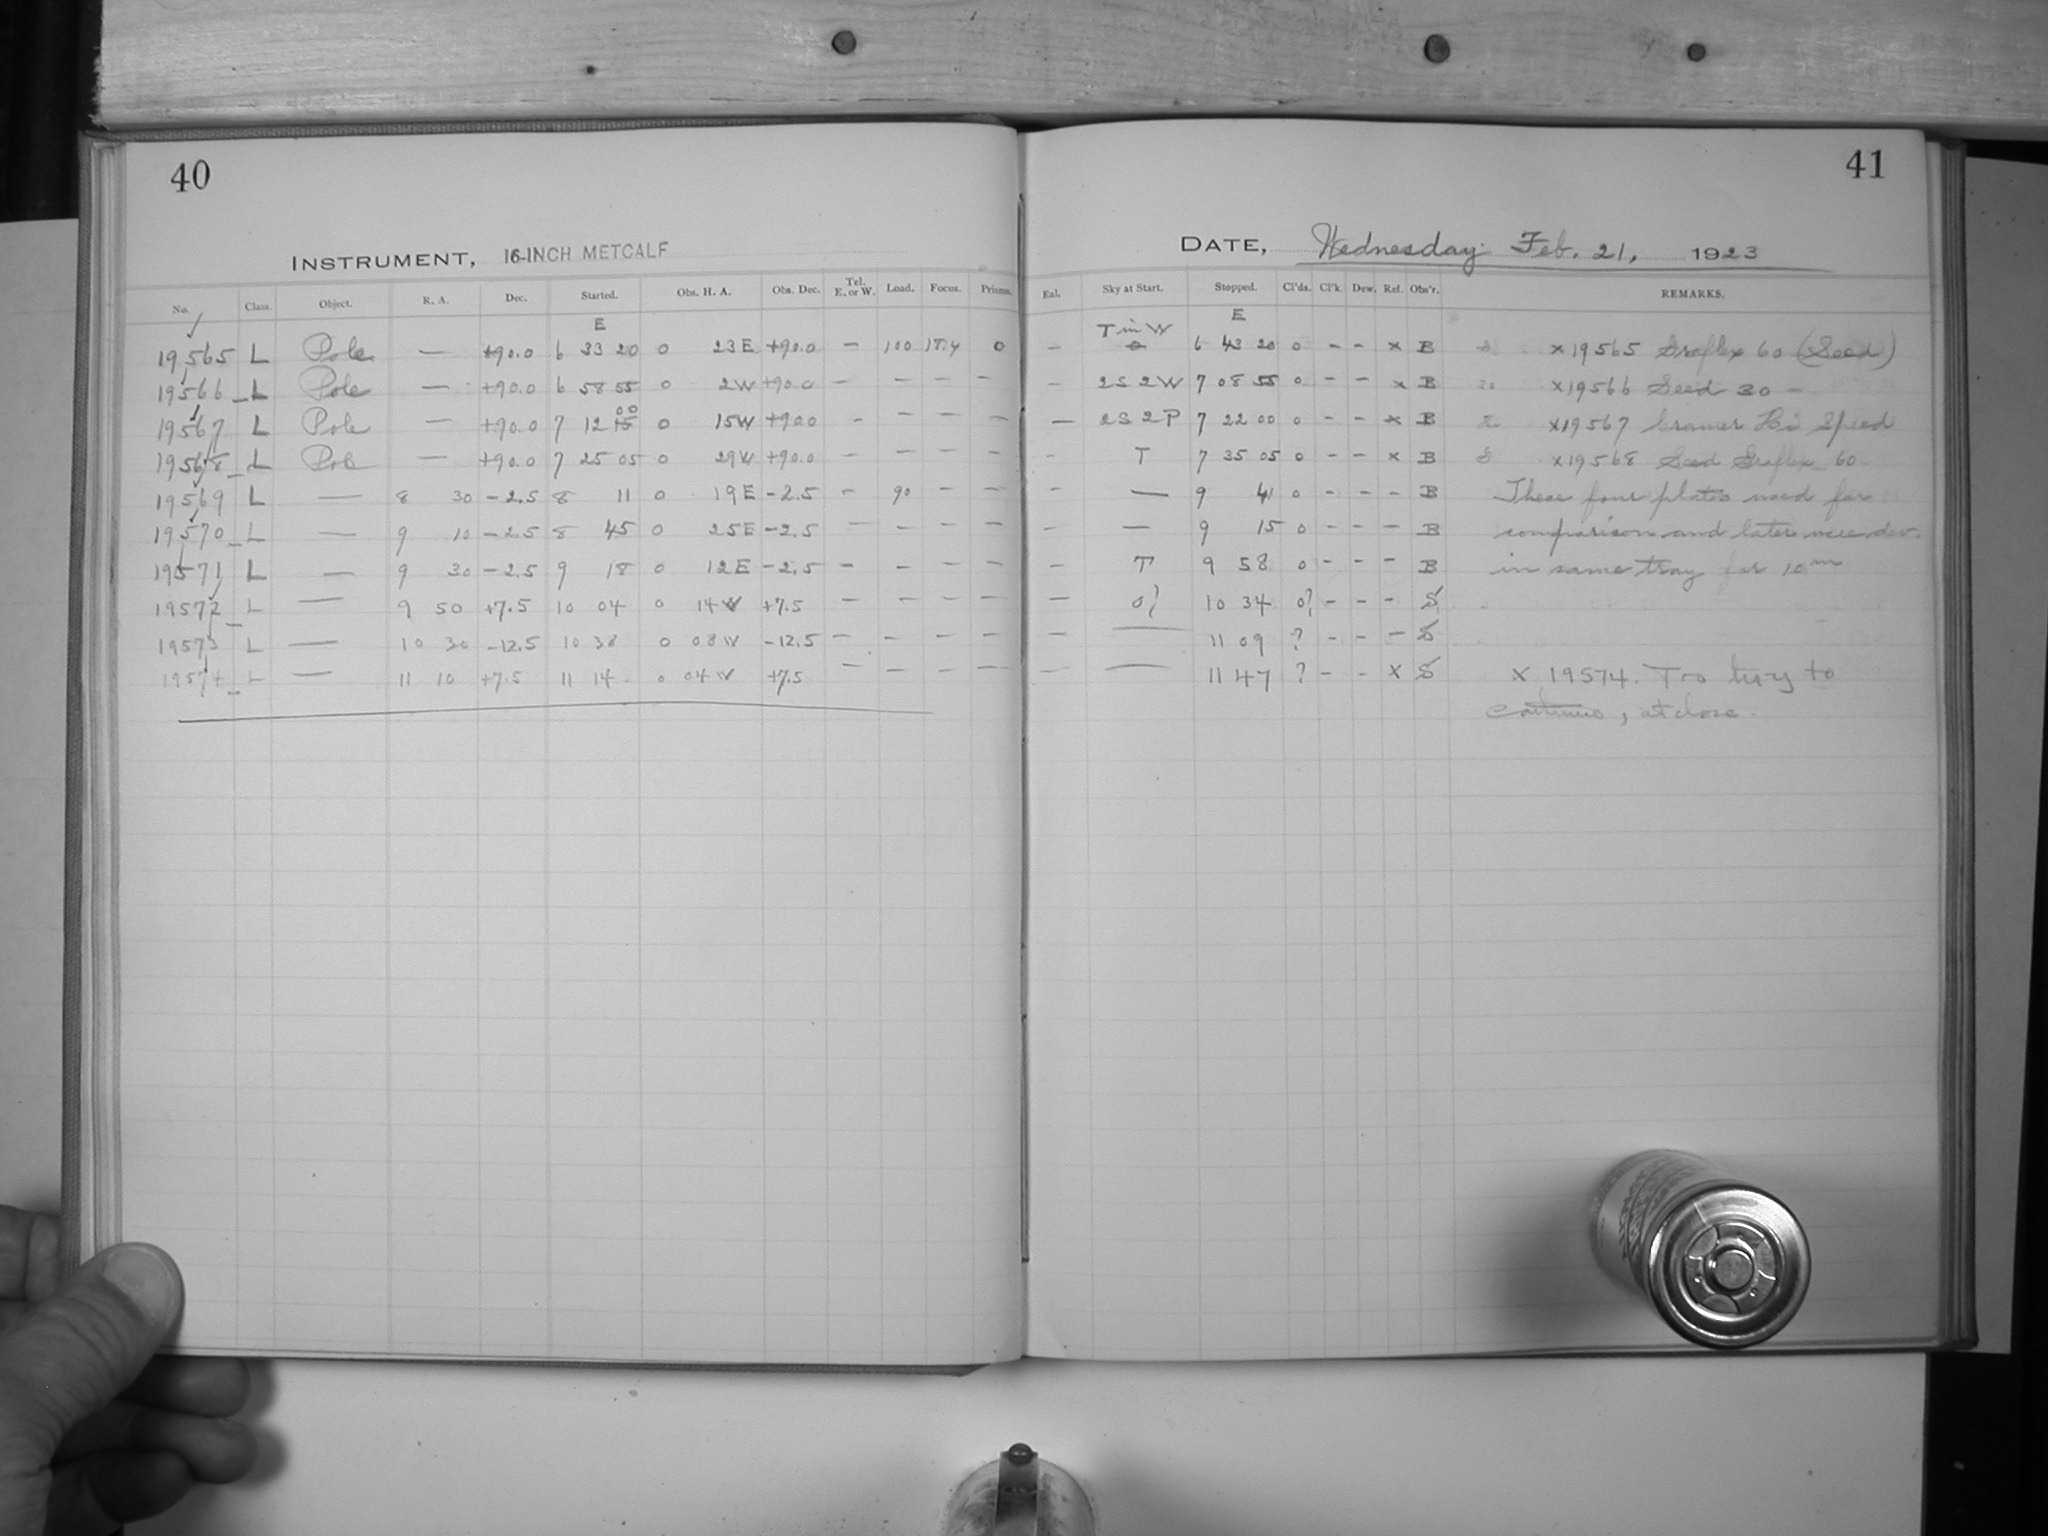 40
INSTRUMENT, 16-INCH METCALF
No. Class. Object. R. A. Dec. Started. Obs. H. A. Obs. Dec. Tel. E. or W. Load. Focus. Prisms.
E
19565 L Pole — +90.0 6 33 20 0 23E +90.0 – 100 18.4 0
19566 L Pole — +90.0 6 58 55 0 2W +90.0 – – – –
00
19567 L Pole — +90.0 7 12 15 0 15W +90.0 – – – –
19568 L Pole — +90.0 7 25 05 0 29W +90.0 – – – –
19569 L — 8 30 -2.5 8 11 0 19E -2.5 – 90 – –
19570 L — 9 10 -2.5 8 45 0 25E -2.5 – – – –
19571 L — 9 30 -2.5 9 18 0 12E -2.5 – – – –
19572 L — 9 50 +7.5 10 04 0 14W +7.5 – – – –
19573 L — 10 30 -12.5 10 38 0 08W -12.5 – – – –
19574 L — 11 10 +7.5 11 14 0 04W +7.5 – – – –
41
DATE, Wednesday Feb. 21, 1923
Exl. Sky at Start. Stopped. Cl'ds. Cl'k. Dew. Ref. Obs'r. REMARKS.
T in W E
– 0 6 43 20 0 – – x B x19565 Graflex 60 (Seed)
– 2S 2W 7 08 55 0 – – x B 30 x19566 Seed 30 –
– 2S 2P 7 22 00 0 – – x B x19567 Cramer Hi Speed
– T 7 35 05 0 – – x B x19568 Seed Graflex 60
– — 9 41 0 – – – B These four plates used for
– — 9 15 0 – – – B comparison and later were dev.
– T 9 58 0 – – – B in same tray for 10m
– 0? 10 34 0? – – – S
– — 11 09 ? – – – S
– — 11 47 ? – – x S x 19574. Too hazy to
continue, at close.